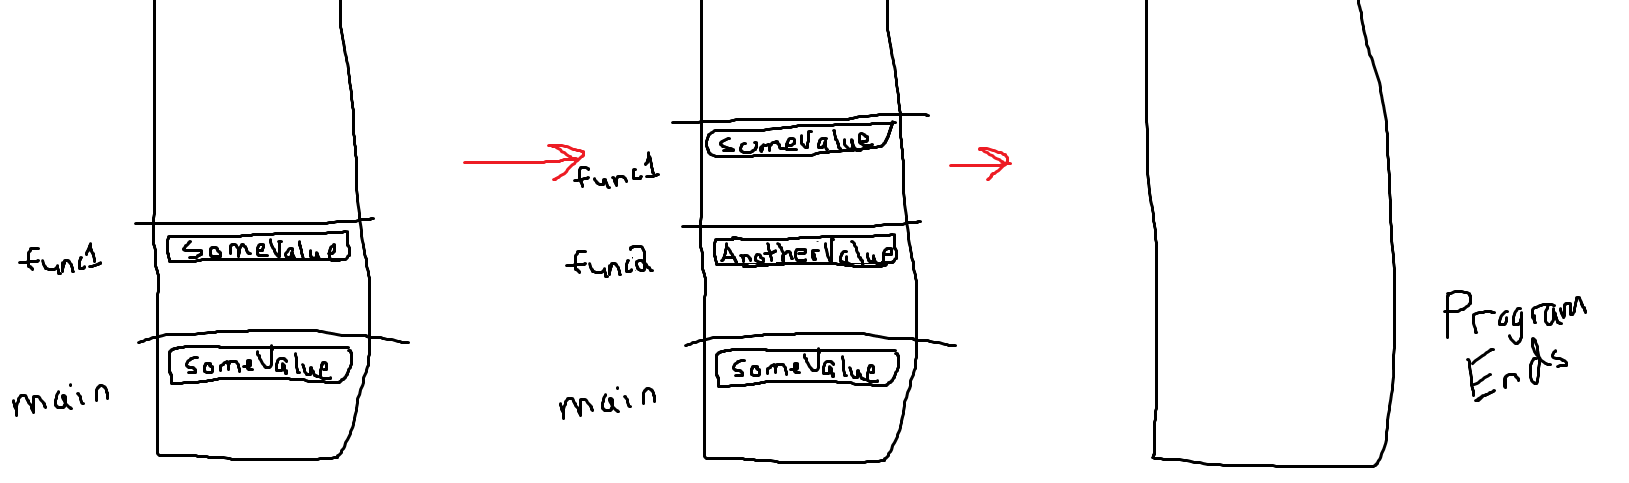 func1
someValue
main
someValue
func1
someValue
func2
AnotherValue
main
someValue
Program
Ends